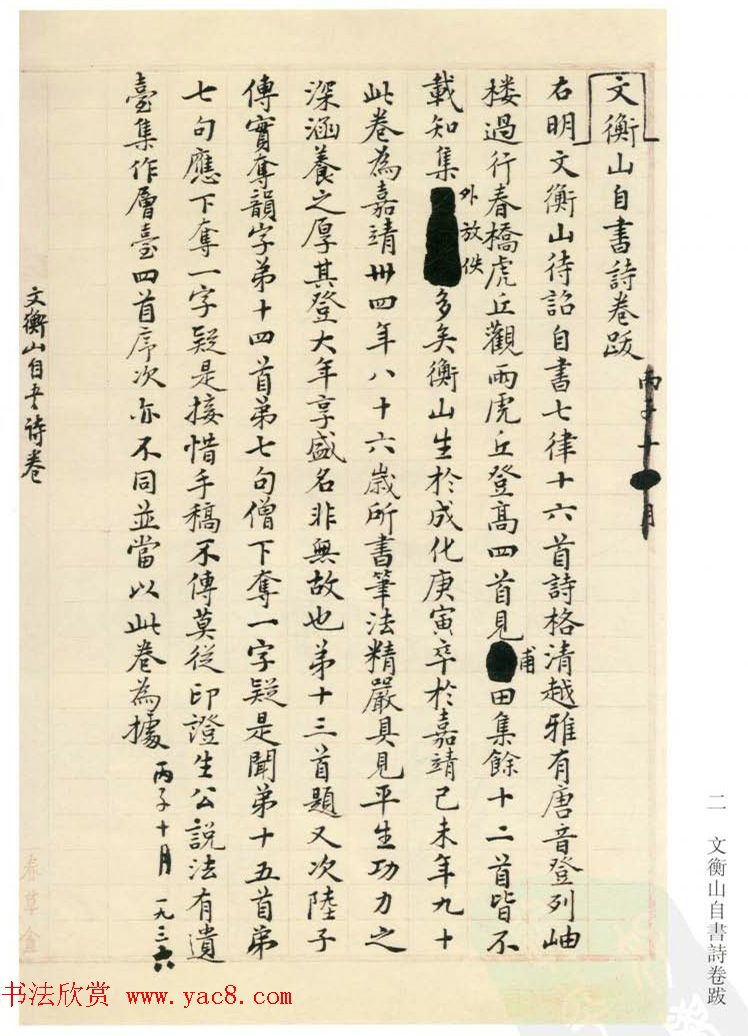 文衡山自書詩卷跋 丙子十月
右明文衡山待詔自書七律十六首詩格清越雅有唐音登列岫
楼過行春橋虎丘觀雨虎丘登高四首見甫田集餘十二首皆不
載知集外放佚多矣衡山生於成化庚寅卒於嘉靖己未年九十
此卷為嘉靖卅四年八十六歲所書筆法精嚴具見平生功力之
深涵養之厚其登大年享盛名非無故也弟十三首題又次陸子
傳實奪韻字弟十四首弟七句僧下奪一字疑是聞弟十五首弟
七句應下奪一字疑是接惜手稿不傳莫從印證生公説法有遺
臺集作層臺四首序次亦不同並當以此卷為據
丙子十月 一九三六
文衡山自书诗卷
春草盦
二 文衡山自書詩卷跋
书法欣赏 www.yac8.com